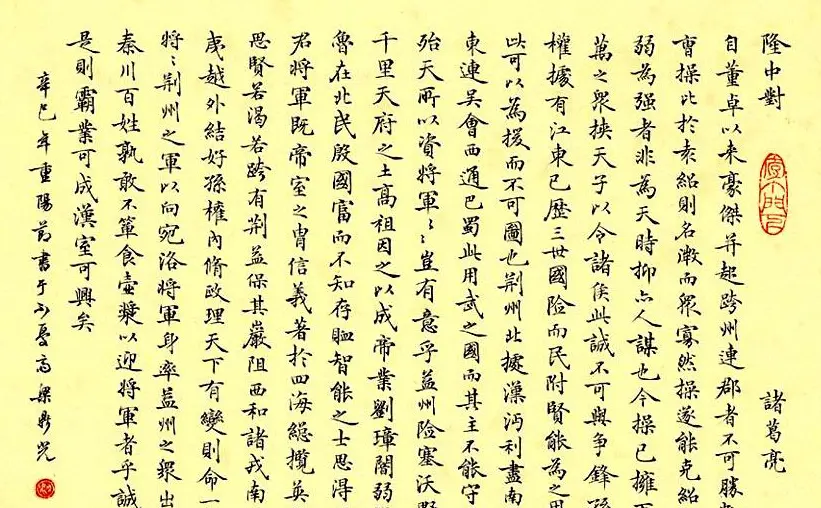 隆中對 諸葛亮
自董卓以来豪傑并起跨州連郡者不可勝
曹操比於袁紹則名微而眾寡然操遂能克紹
弱為强者非為天時抑亦人謀也今操已擁
萬之眾挾天子以令諸侯此誠不可與争鋒孫
權據有江東已歷三世國險而民附賢能為之用
此可以為援而不可圖也荆州北據漢沔利盡南
東連吳會西通巴蜀此用武之國而其主不能守
殆天所以資將軍〻豈有意乎益州險塞沃野
千里天府之土高祖因之以成帝業劉璋闇弱
魯在北民殷國富而不知存卹智能之士思得
君將軍既帝室之胄信義著於四海總攬英
思賢若渴若跨有荆益保其巖阻西和諸戎南
夷越外結好孫權內脩政理天下有變則命一
將〻荆州之軍以向宛洛將軍身率益州之眾出
秦川百姓孰敢不簞食壺漿以迎將軍者乎誠
是則霸業可成漢室可興矣
辛巳年重陽前書于不憂高梁鼎光